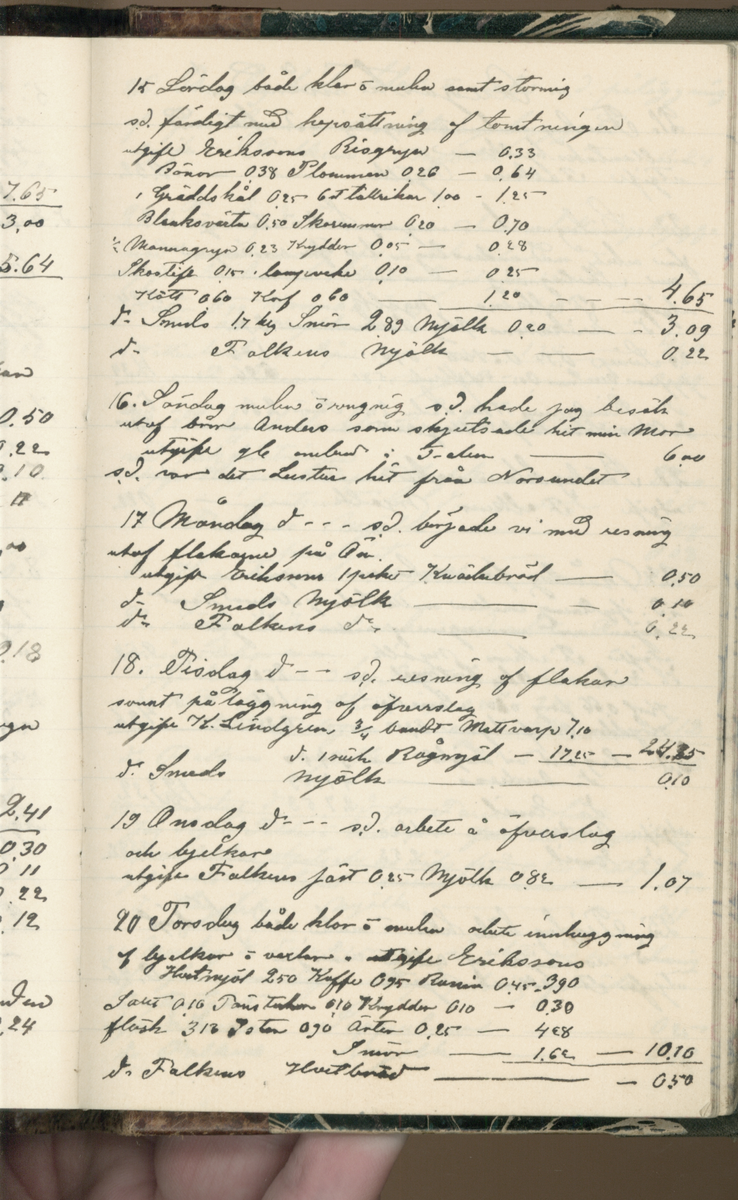 7.65
3,00
5.64
0.50
0,22
0.10
0.18
2.41
0.30
0 11
0.22
0.12
0.24
15 Lördag både klar o mulen samt stormig
s.d. färdigt med hopsättning af tomtningen
utgift Erikssons Risgryn — 0.33
Bönor 0.38 Plommon 0.26 — 0.64
1 Gräddskål 0.25 6 st tallrikar 1.00 - 1.25
Blanksvärta 0.50 0.20 — 0.70
½ Mannagryn 0.23 Kryddor 0.05 — 0.28
Skostift 0.15 1 lampveke 0.10 — 0.25
Kött 0.60 Korf 0.60 — 1.20 - - - 4.65
do Smeds 1.7 kg Smör 2.89 Mjölk 0.20 — - 3.09
do Falkens Mjölk — — 0.22
16. Söndag mulen o regnig s.d. hade jag besök
utaf bror Anders som skjutsade hit min Mor
utgift — 6.00
s.d. var det hit från Norsundet
17 Måndag do - - - s.d. började vi med resning
utaf flakarne på Ön.
utgift Eriksons 1 Kvädebröd — 0.50
do Smeds Mjölk — - 0.10
do Falkens do — 0.22
18. Tisdag do - - s.d. resning af flakar
samt påläggning af öfverslag
utgift K. Lindgren ¾ bundt Mattvarp 7,10
do 1 säck Rågmjöl — 17.25 —
do Smeds Mjölk — 0.10
19 Onsdag do - - - s.d. arbete å öfverslag
och bjelkar
utgift Falkens Jäst 0.25 Mjölk 0.82 — 1.07
20 Torsdag både klar o mulen arbete inhuggning
af bjelkar o vexlar. utgift Erikssons
Hvetmjöl 2.50 Kaffe 0.95 Russin 0.45 3.90
0.10 0.10 Kryddor 0.10 — 0.30
fläsk 3.13 Ister 0.90 Ärter 0.25 — 4.28
Smör — 1.62 — 10.10
do Falkens Hvetbröd — - 0.50